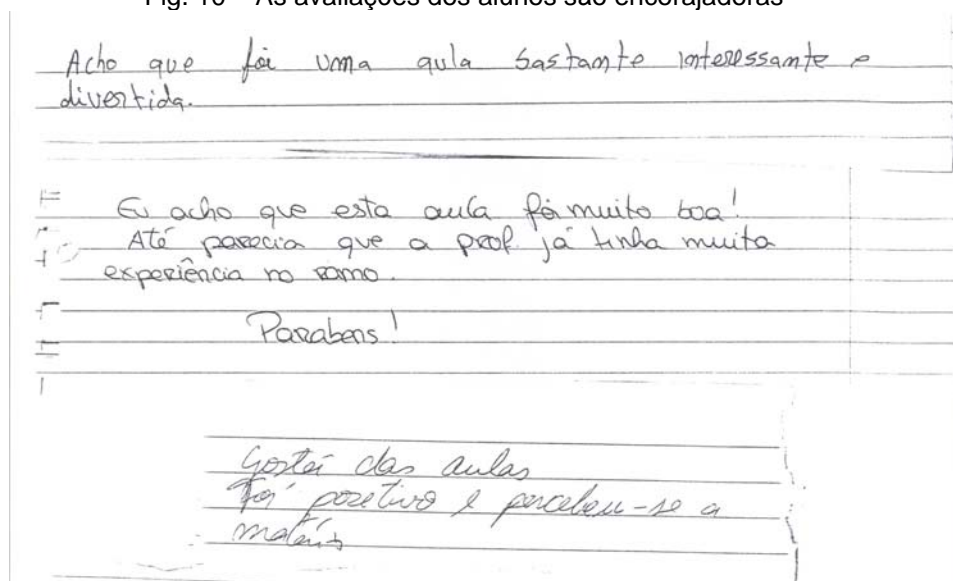 Fig. 10 – As avaliações dos alunos são encorajadoras
Acho que foi uma aula bastante interessante e
divertida.
Eu acho que esta aula foi muito boa!
Até parecia que a prof. já tinha muita
experiência no ramo.
Parabens!
Gostei das aulas
Foi pozetivo e percebeu-se a
matéria